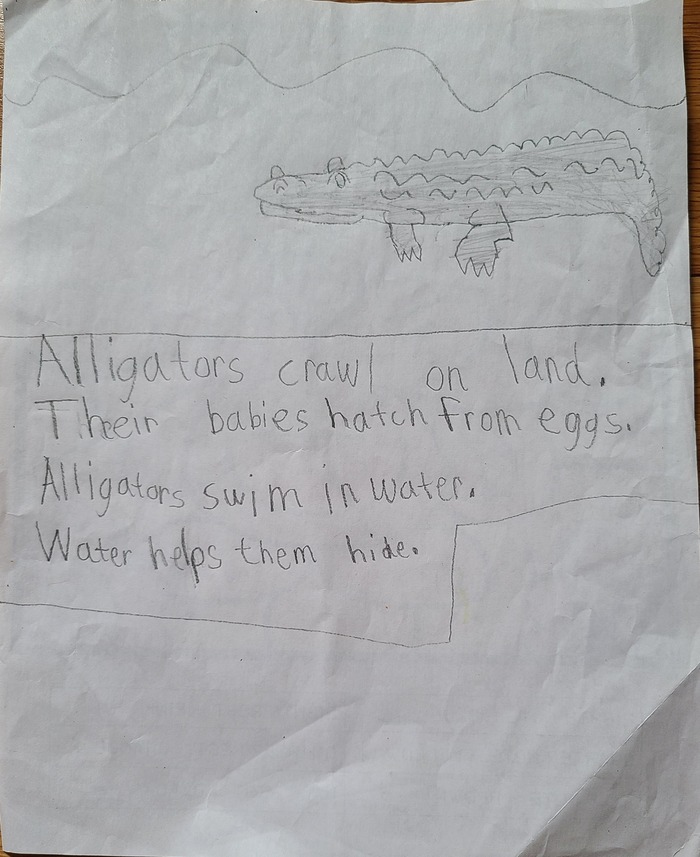 Alligators crawl on land.
Their babies hatch from eggs.
Alligators swim in water.
Water helps them hide.